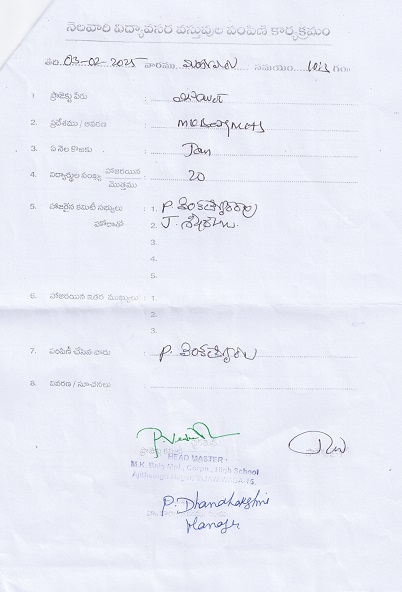 నెలవారి విద్యావసర వస్తువుల పంపిణి కార్యక్రమం
తేది 03-02-2025 వారము సమయం 1013 గం॥
1. ప్రాజెక్టు పేరు :
2. ప్రదేశము / ఆవరణ :
3. ఏ నెల కొఱకు : Jan
4. విద్యార్థుల సంఖ్య హాజరయిన / మొత్తము : 20
5. హాజరైన కమిటీ సభ్యులు : 1. P. వెంకటేశ్వరరావు
హోదాతో 2. J.
3.
4.
5.
6. హాజరయిన ఇతర ముఖ్యులు : 1.
2.
3.
7. పంపిణీ చేసిన వారు : P. వెంకటేశ్వరరావు
8. వివరణ / సూచనలు :
HEAD MASTER
M.K. Baig Mpl. Corpn. High School
P. Dhanalakshmi
Manager